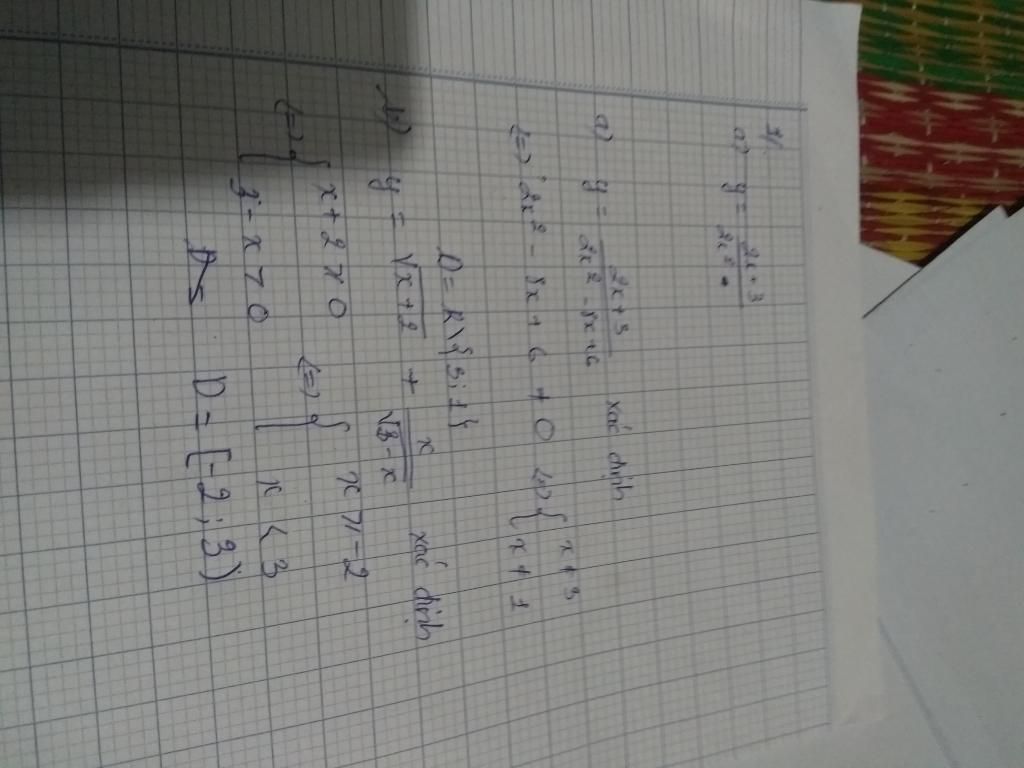 1/.
a) y = \frac{2x+3}{2x^2}
a) y = \frac{2x+3}{2x^2-8x+6} xác định
<=> 2x^2 - 8x + 6 ≠ 0 <=> { x ≠ 3
x ≠ 1
D = R \ {3; 1}
b) y = \sqrt{x+2} + \frac{x}{\sqrt{3-x}} xác định
<=> { x + 2 ≥ 0 <=> { x ≥ -2
3 - x > 0 x < 3
D = D = [-2; 3)